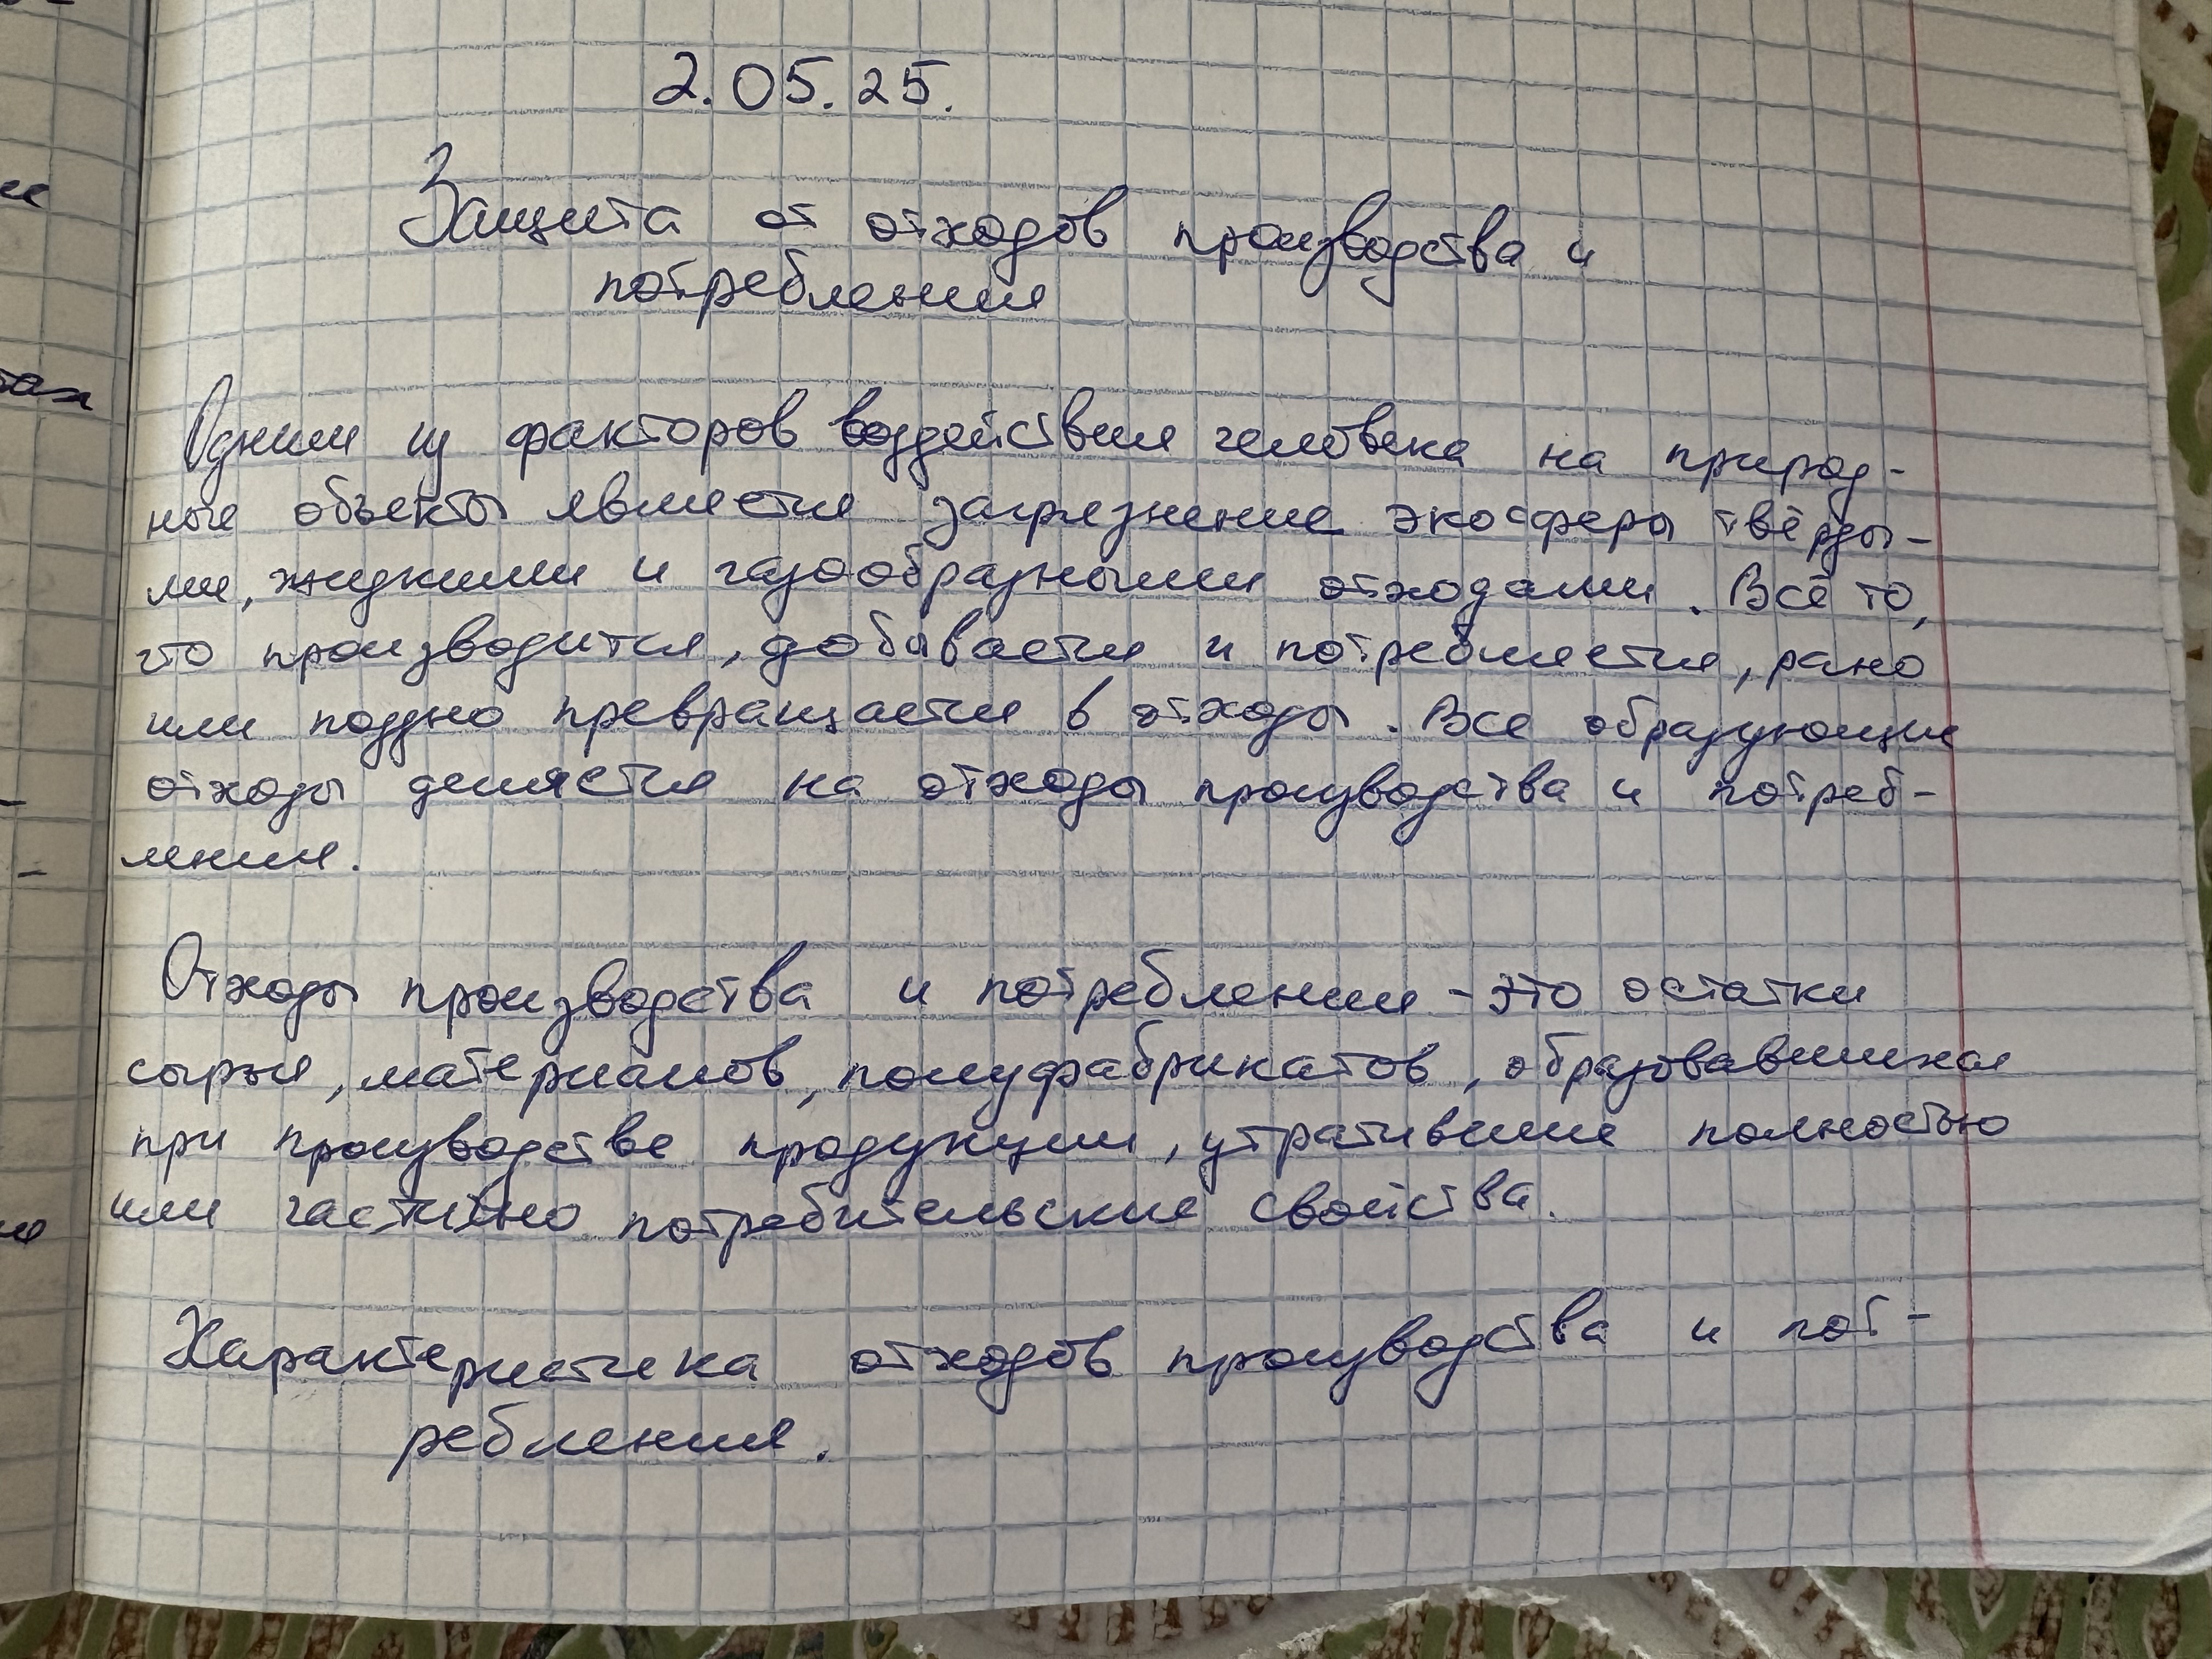 2.05.25.
Защита от отходов производства и
потребления
Одним из факторов воздействия человека на природ-
ные объекты является загрязнение экосферы твёрды-
ми, жидкими и газообразными отходами. Всё то,
что производится, добывается и потребляется, рано
или поздно превращается в отходы. Все образующие
отходы делятся на отходы производства и потреб-
ления.
Отходы производства и потребления - это остатки
сырья, материалов, полуфабрикатов, образовавшихся
при производстве продукции, утратившие полностью
или частично потребительские свойства.
Характеристика отходов производства и пот-
ребления.